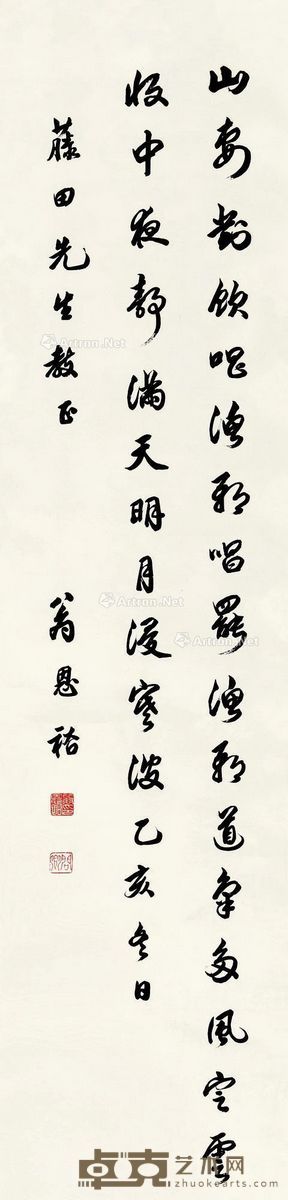 山妻對飲唱漁歌唱罷漁歌道氣多風定雲
收中夜靜滿天明月浸寒波乙亥冬日
藤田先生教正
翁恩裕
Artron.Net
Artron.Net
Artron.Net
Artron.Net
卓克艺术网
www.zhuokearts.com